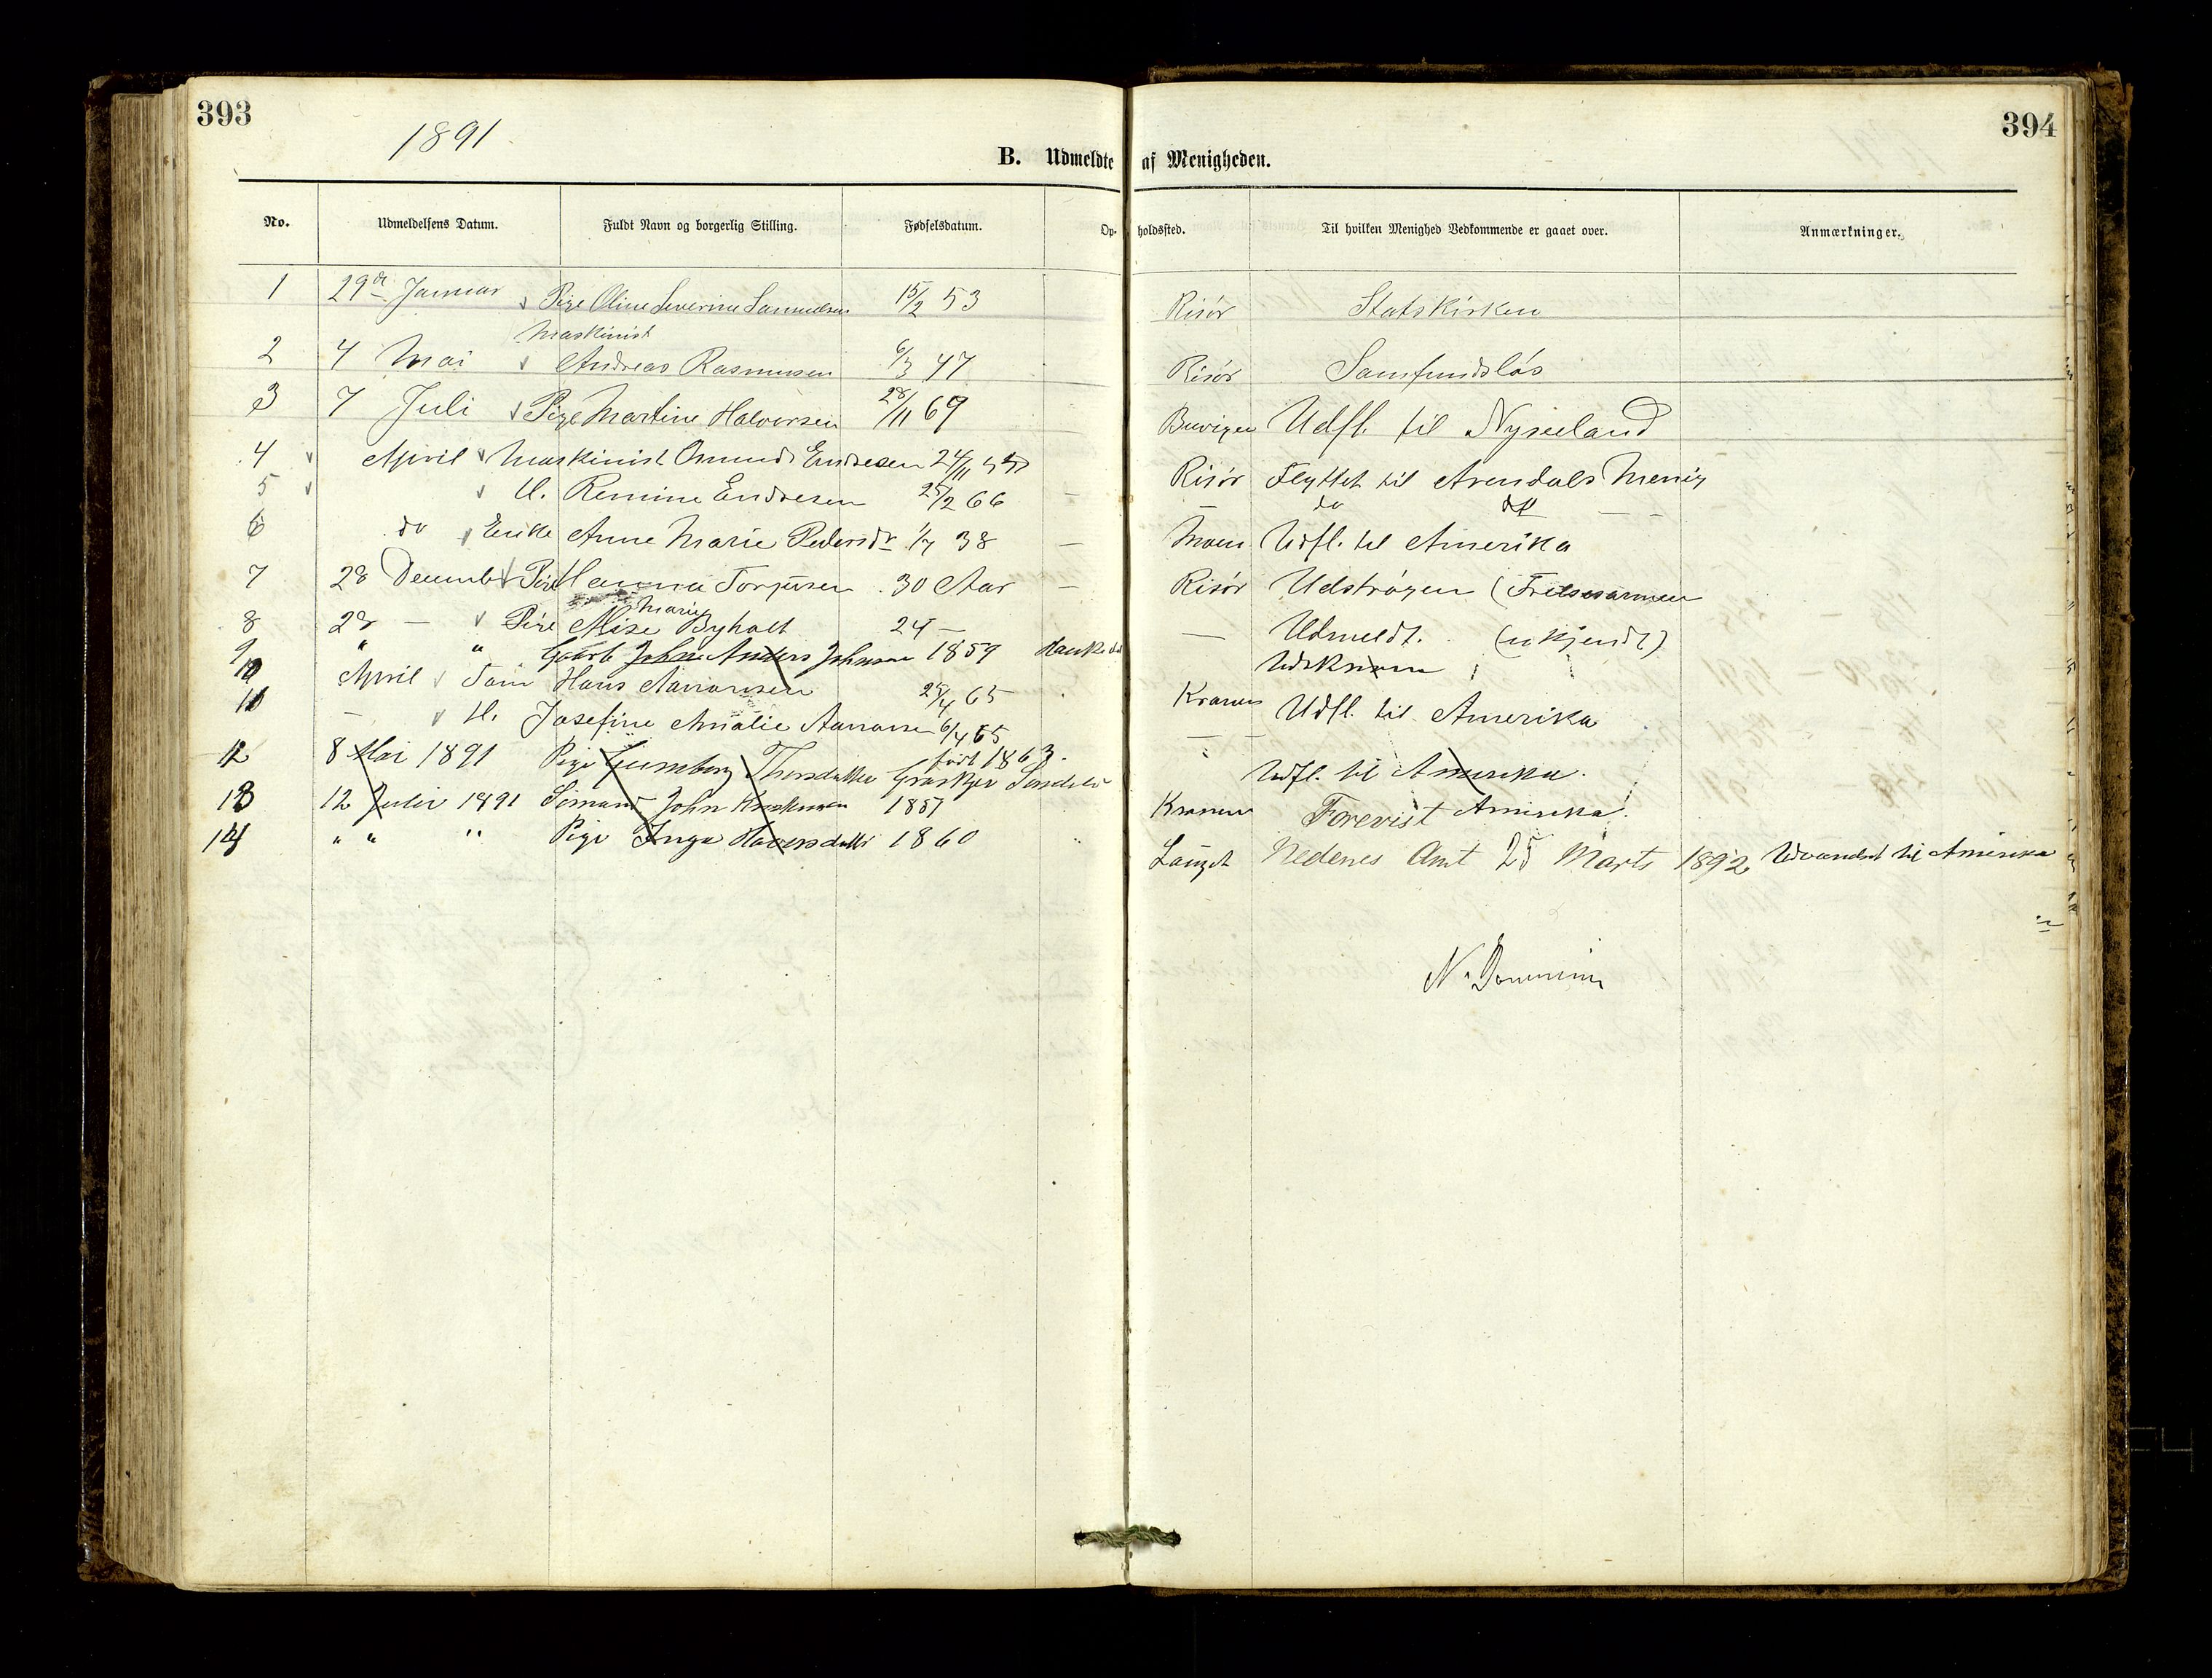 393
394
1891
B. Udmeldte af Menigheden.
No. Udmeldelsens Datum. Fuldt Navn og borgerlig Stilling. Fødselsdatum. Opholdssted. Til hvilken Menighed Vedkommende er gaaet over. Anmærkninger.
1 29de Januar Pige Oline Severine Samuelsen 15/2 53 Risör Statskirken
Maskinist
2 4 Mai Andreas Rasmussen 6/3 47 Risör Samfundslös
3 7 Juli Pige Martine Halvorsen 28/11 69 Buvigen Udfl. til Nyseeland
4 April Maskinist Osmund Endresen 24/11 Risör Flyttet til Arendals Menig
5 H. Remine Endresen 25/2 66 — do do
6 do Enke Anne Marie Pedersdr 1/7 38 — Moen Udfl. til Amerika
7 28 December Pige Hanna Torjusen 30 Aar — Risör Udströgen (Frelsesarmeen
Marie
8 28 — Pige Alise Byholt 24 — — Udmeldt. (ukjendt)
9 " " Gaarb John Anders Johnsen 1859
10 April Hans Aanonsen 25/4 65 Kranen Udfl. til Amerika
11 — H. Josefine Amalie Aanonsen 6/4 65 — —
12 8 Mai 1891 Pige Gunnborg Thorsdatter född 1863. Udfl. til Amerika.
13 12 Julir 1891 Sömand John 1857 Kranen Forevist Amerika.
14 " " " Pige Inga 1860 " Lauget Nedenes Amt 25 Marts 1892 Udvandret til Amerika